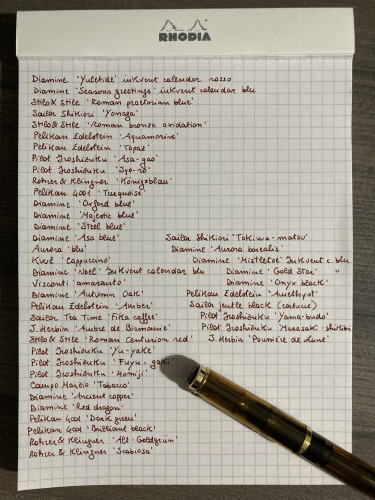 RHODIA
Diamine 'Yuletide' inkvent calendar rosso
Diamine 'Seasons greetings' inkvent calendar blu
Stilo & Stile 'Roman praetorian blue'
Sailor Shikiori 'Yonaga'
Stilo & Stile 'Roman bronze oxidation'
Pelikan Edelstein 'Aquamarine'
Pelikan Edelstein 'Topaz'
Pilot Iroshizuku 'Asa-gao'
Pilot Iroshizuku 'Syo-ro'
Rohrer & Klingner 'Königsblau'
Pelikan 4001 'Turquoise'
Diamine 'Oxford blue'
Diamine 'Majestic blue'
Diamine 'Steel blue'
Diamine 'Asa blue' Sailor Shikiori 'Tokiwa-matsu'
Aurora 'blu' Diamine 'Aurora borealis'
Kwz 'Cappuccino' Diamine 'Mistletoe' Inkvent c. blu
Diamine 'Noel' Inkvent calendar blu Diamine 'Gold Star' "
Visconti 'amaranto' Diamine 'Onyx black'
Diamine 'Autumn Oak' Pelikan Edelstein 'Amethyst'
Pelikan Edelstein 'Amber' Sailor jentle black
Sailor Tea Time 'Fika coffee' Pilot Iroshizuku 'Yama-budo'
J. Herbin 'Ambre de Birmanie' Pilot Iroshizuku 'Murasaki-shikibu
Stilo & Stile 'Roman Centurion red' J. Herbin 'Poussière de Lune'
Pilot Iroshizuku 'Yu-yake'
Pilot Iroshizuku 'Fuyu-gaki'
Pilot Iroshizuku 'Momiji'
Campo Marzio 'Tobacco'
Diamine 'Ancient copper'
Diamine 'Red dragon'
Pelikan 4001 'Dark green'
Pelikan 4001 'Brilliant black'
Rohrer & Klingner 'Alt-Goldgrün'
Rohrer & Klingner 'Scabiosa'